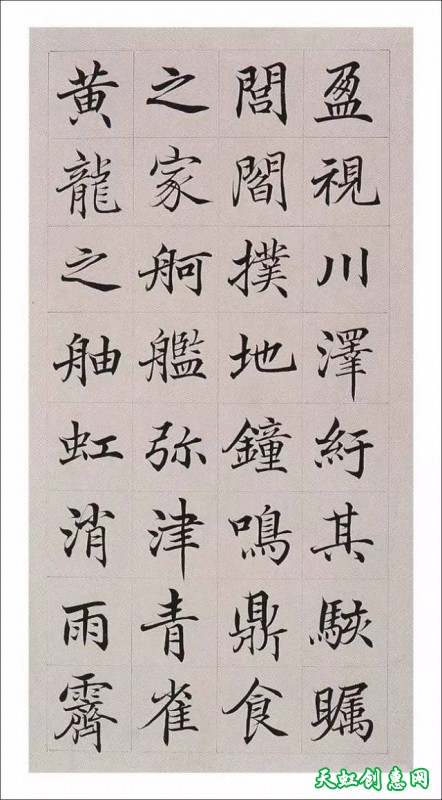 盈視川澤紆其駭矚
閭閻撲地鐘鳴鼎食
之家舸艦弥津青雀
黄龍之舳虹消雨霽
天虹创惠网